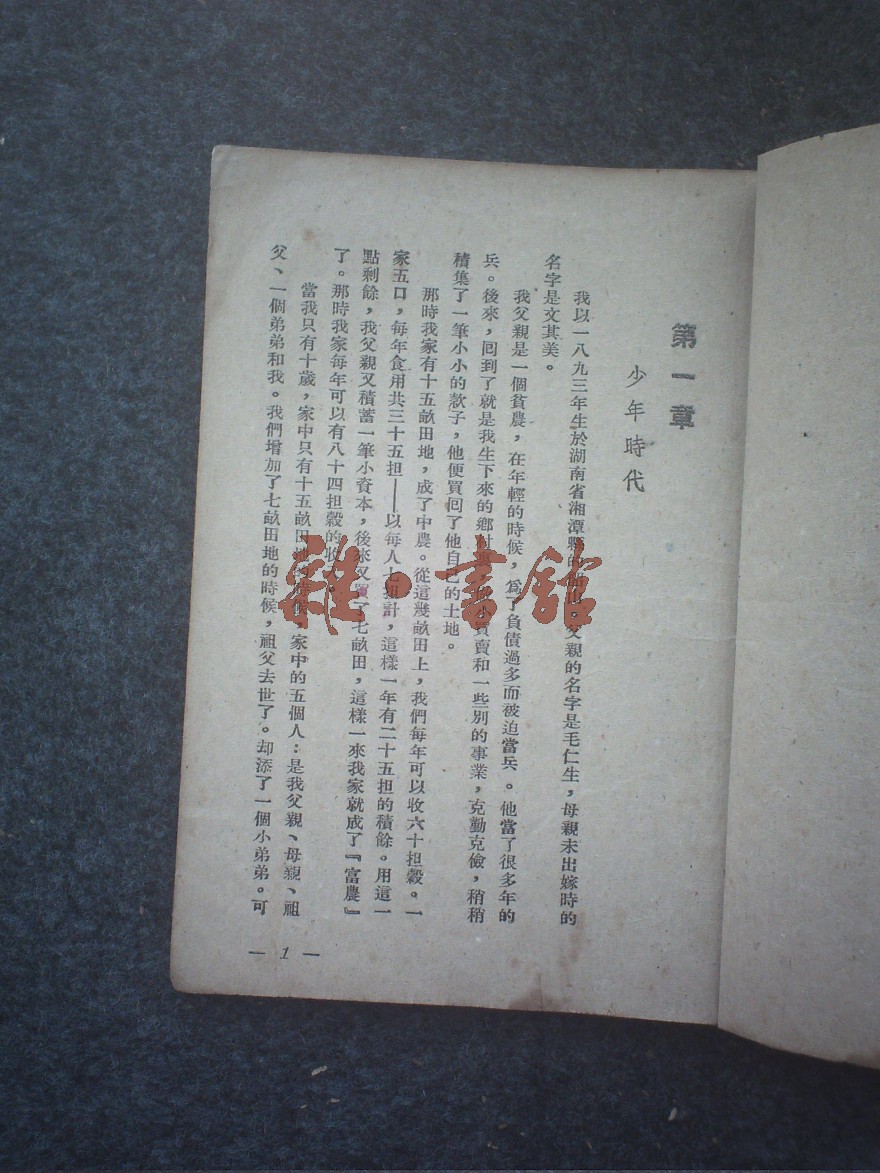 第一章
少年時代
我以一八九三年生於湖南省湘潭縣的山。父親的名字是毛仁生，母親未出嫁時的
名字是文其美。
我父親是一個貧農，在年輕的時候，爲了負債過多而被迫當兵。他當了很多年的
兵。後來，囘到了就是我生下來的鄉村，小買賣和一些別的事業，克勤克儉，稍稍
積集了一筆小小的欵子，他便買囘了他自己的土地。
那時我家有十五畝田地，成了中農。從這幾畝田上，我們每年可以收六十担穀。一
家五口，每年食用共三十五担——以每人七担計，這樣一年有二十五担的積餘。用這一
點剩餘，我父親又積蓄一筆小資本，後來又買了七畝田，這樣一來我家就成了『富農』
了。那時我家每年可以有八十四担穀的收。
當我只有十歲，家中只有十五畝田地的時候，家中的五個人：是我父親、母親、祖
父、一個弟弟和我。我們增加了七畝田地的時候，祖父去世了。却添了一個小弟弟。可
— 1 —
雜·書館